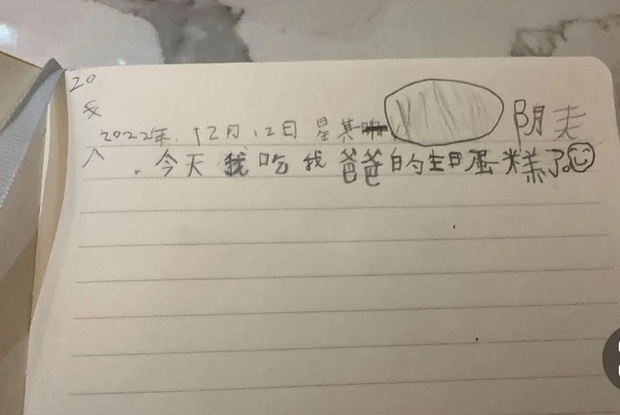 20
2022年.12月12日 星其 阴夫
入 .今天我吃我爸爸的生日蛋糕了。